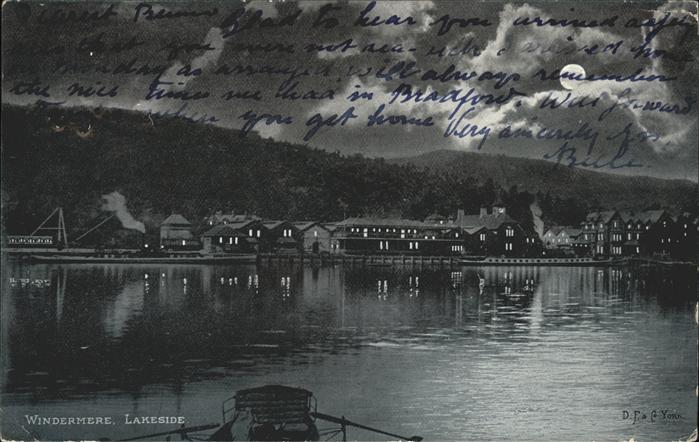 Dearest Glad to hear you arrived
that you were not sea-sick. arrived home
Monday as arranged. Will always remember
the nice times we had in Bradford. Will forward
when you get home Very sincerely Yrs.
WINDERMERE, LAKESIDE
D.F. & Co York